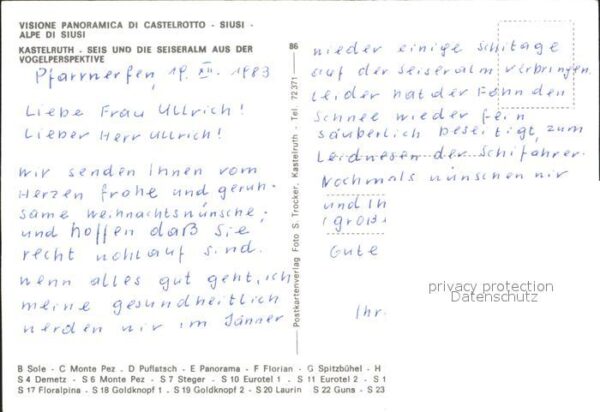 VISIONE PANORAMICA DI CASTELROTTO - SIUSI -
ALPE DI SIUSI
KASTELRUTH - SEIS UND DIE SEISERALM AUS DER
VOGELPERSPEKTIVE
Pfarrwerfen, 19. XII. 1983
Liebe Frau Ullrich!
Lieber Herr Ullrich!
Wir senden Ihnen vom
Herzen frohe und geruh-
same Weihnachtswünsche;
und hoffen daß Sie
recht wohlauf sind.
Wenn alles gut geht, ich
meine gesundheitlich
werden wir im Jänner
86
Postkartenverlag Foto S. Trocker, Kastelruth - Tel. 72371
wieder einige Schitage
auf der Seiseralm verbringen.
Leider hat der Föhn den
Schnee wieder fein
säuberlich beseitigt, zum
Leidwesen der Schifahrer.
Nochmals wünschen wir
und Ih
(groß
Gute
Ihr.
privacy protection
Datenschutz
B Sole - C Monte Pez - D Puflatsch - E Panorama - F Florian - G Spitzbühel - H
S 4 Demetz - S 6 Monte Pez - S 7 Steger - S 10 Eurotel 1 - S 11 Eurotel 2 - S 1
S 17 Floralpina - S 18 Goldknopf 1 - S 19 Goldknopf 2 - S 20 Laurin S 22 Guns - S 23